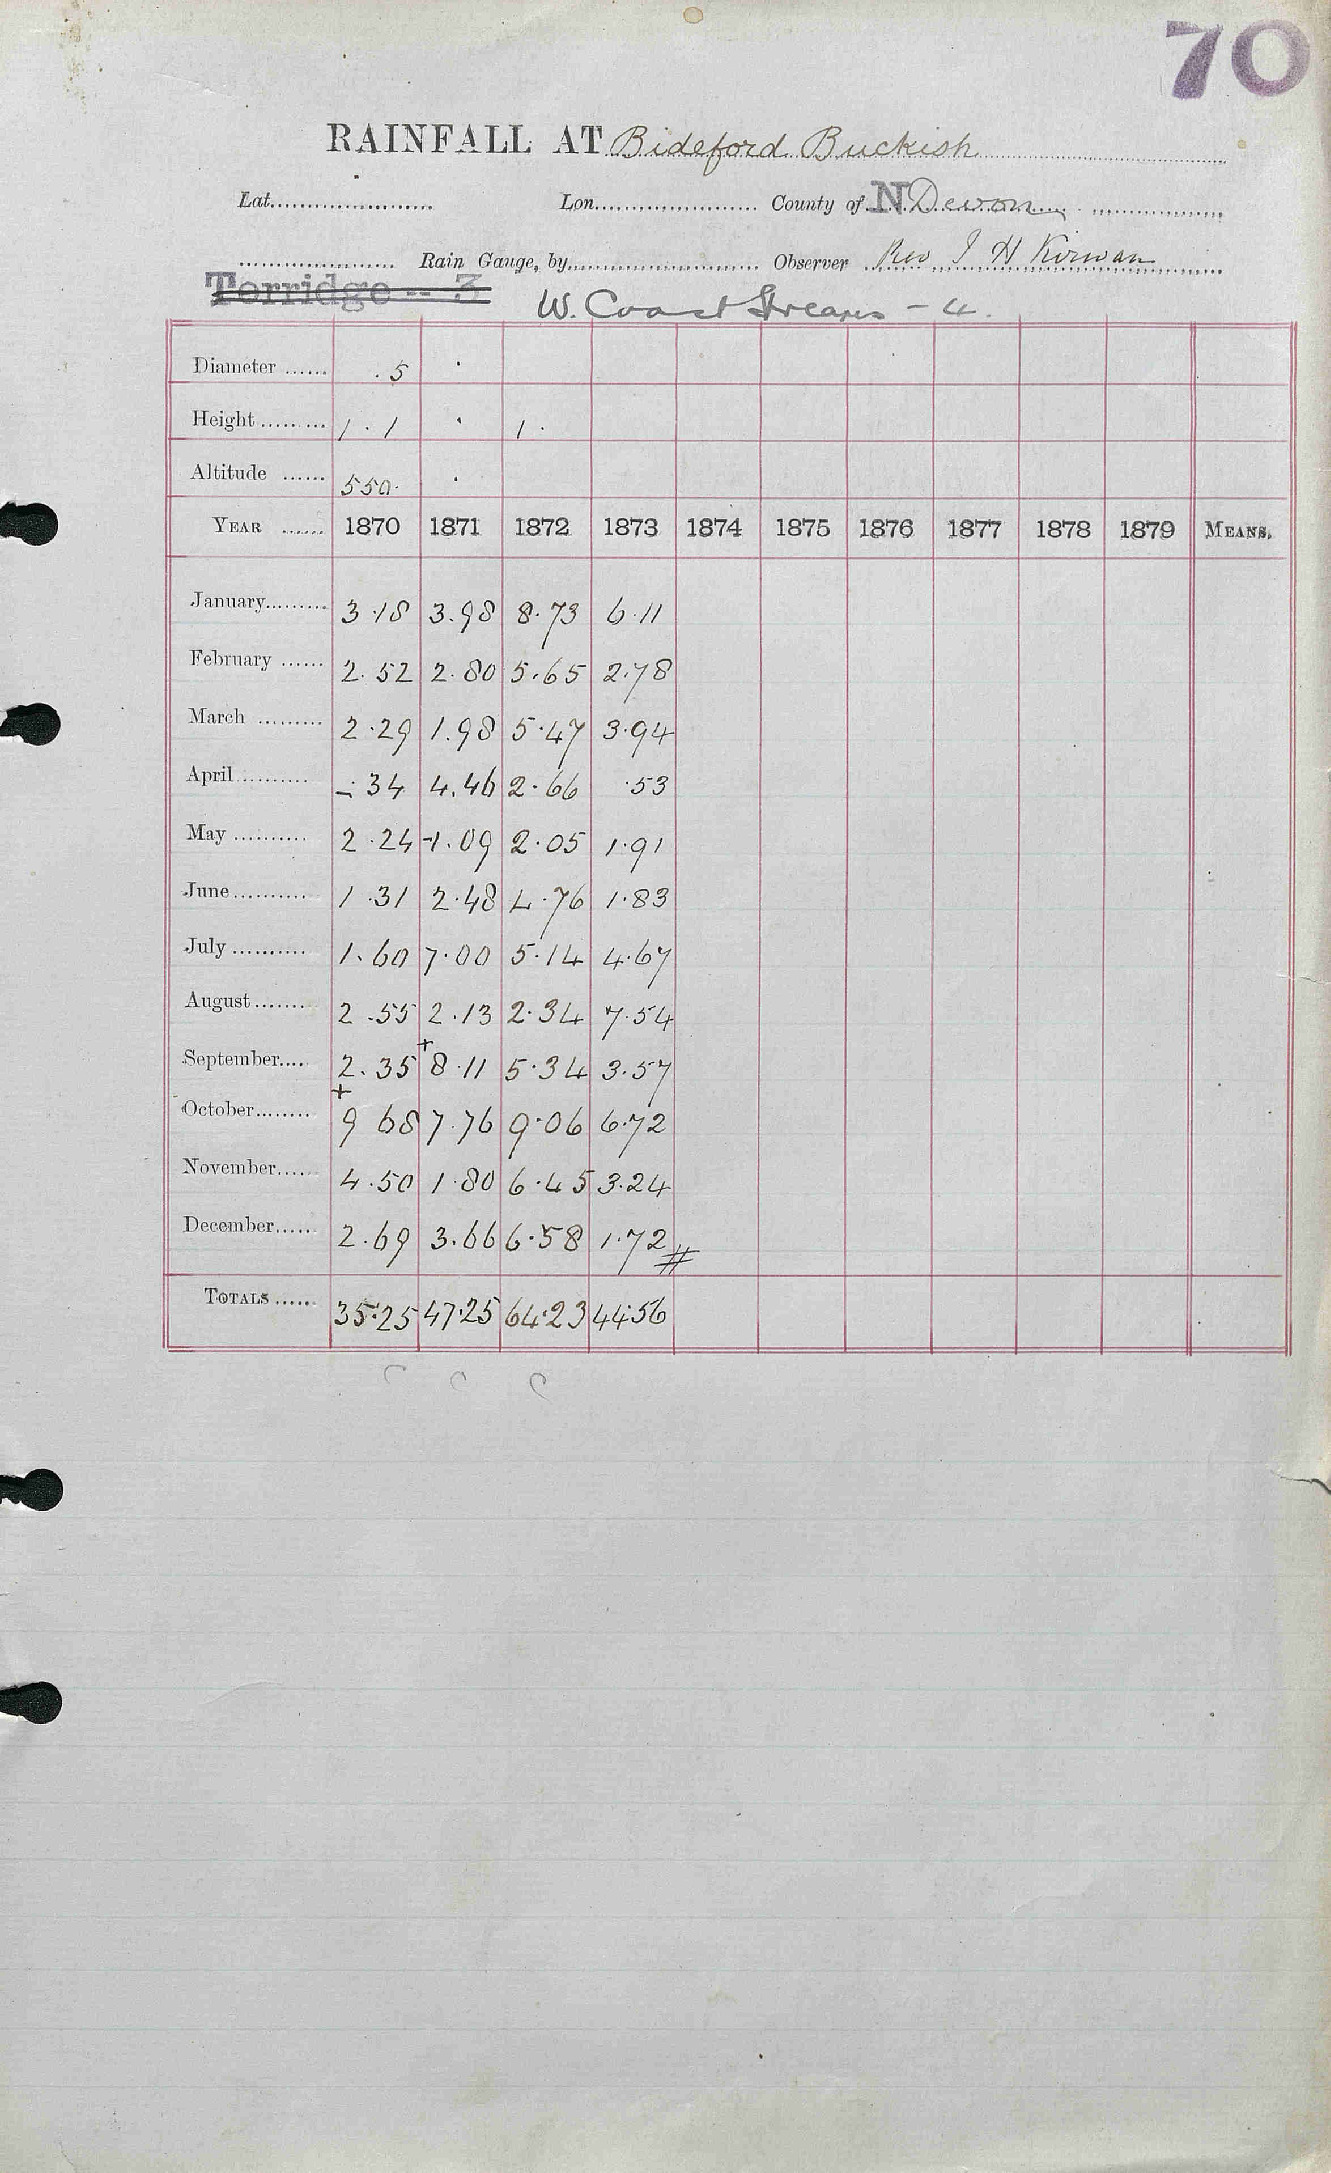 70
RAINFALL AT Bideford Buckish
Lat. Lon. County of N Devon
Rain Gauge, by Observer Rev I H Kirwan
Torridge -- 3 W. Coast Streams - 4.
Diameter .5
Height 1.1 1.
Altitude 550.
YEAR 1870 1871 1872 1873 1874 1875 1876 1877 1878 1879 MEANS.
January 3.18 3.98 8.73 6.11
February 2.52 2.80 5.65 2.78
March 2.29 1.98 5.47 3.94
April -.34 4.46 2.66 .53
May 2.24 -1.09 2.05 1.91
June 1.31 2.48 4.76 1.83
July 1.60 7.00 5.14 4.67
August 2.55 2.13 2.34 7.54
September 2.35 +8.11 5.34 3.57
October +9 68 7.76 9.06 6.72
November 4.50 1.80 6.45 3.24
December 2.69 3.66 6.58 1.72 #
TOTALS 35.25 47.25 64.23 44.56
C C C